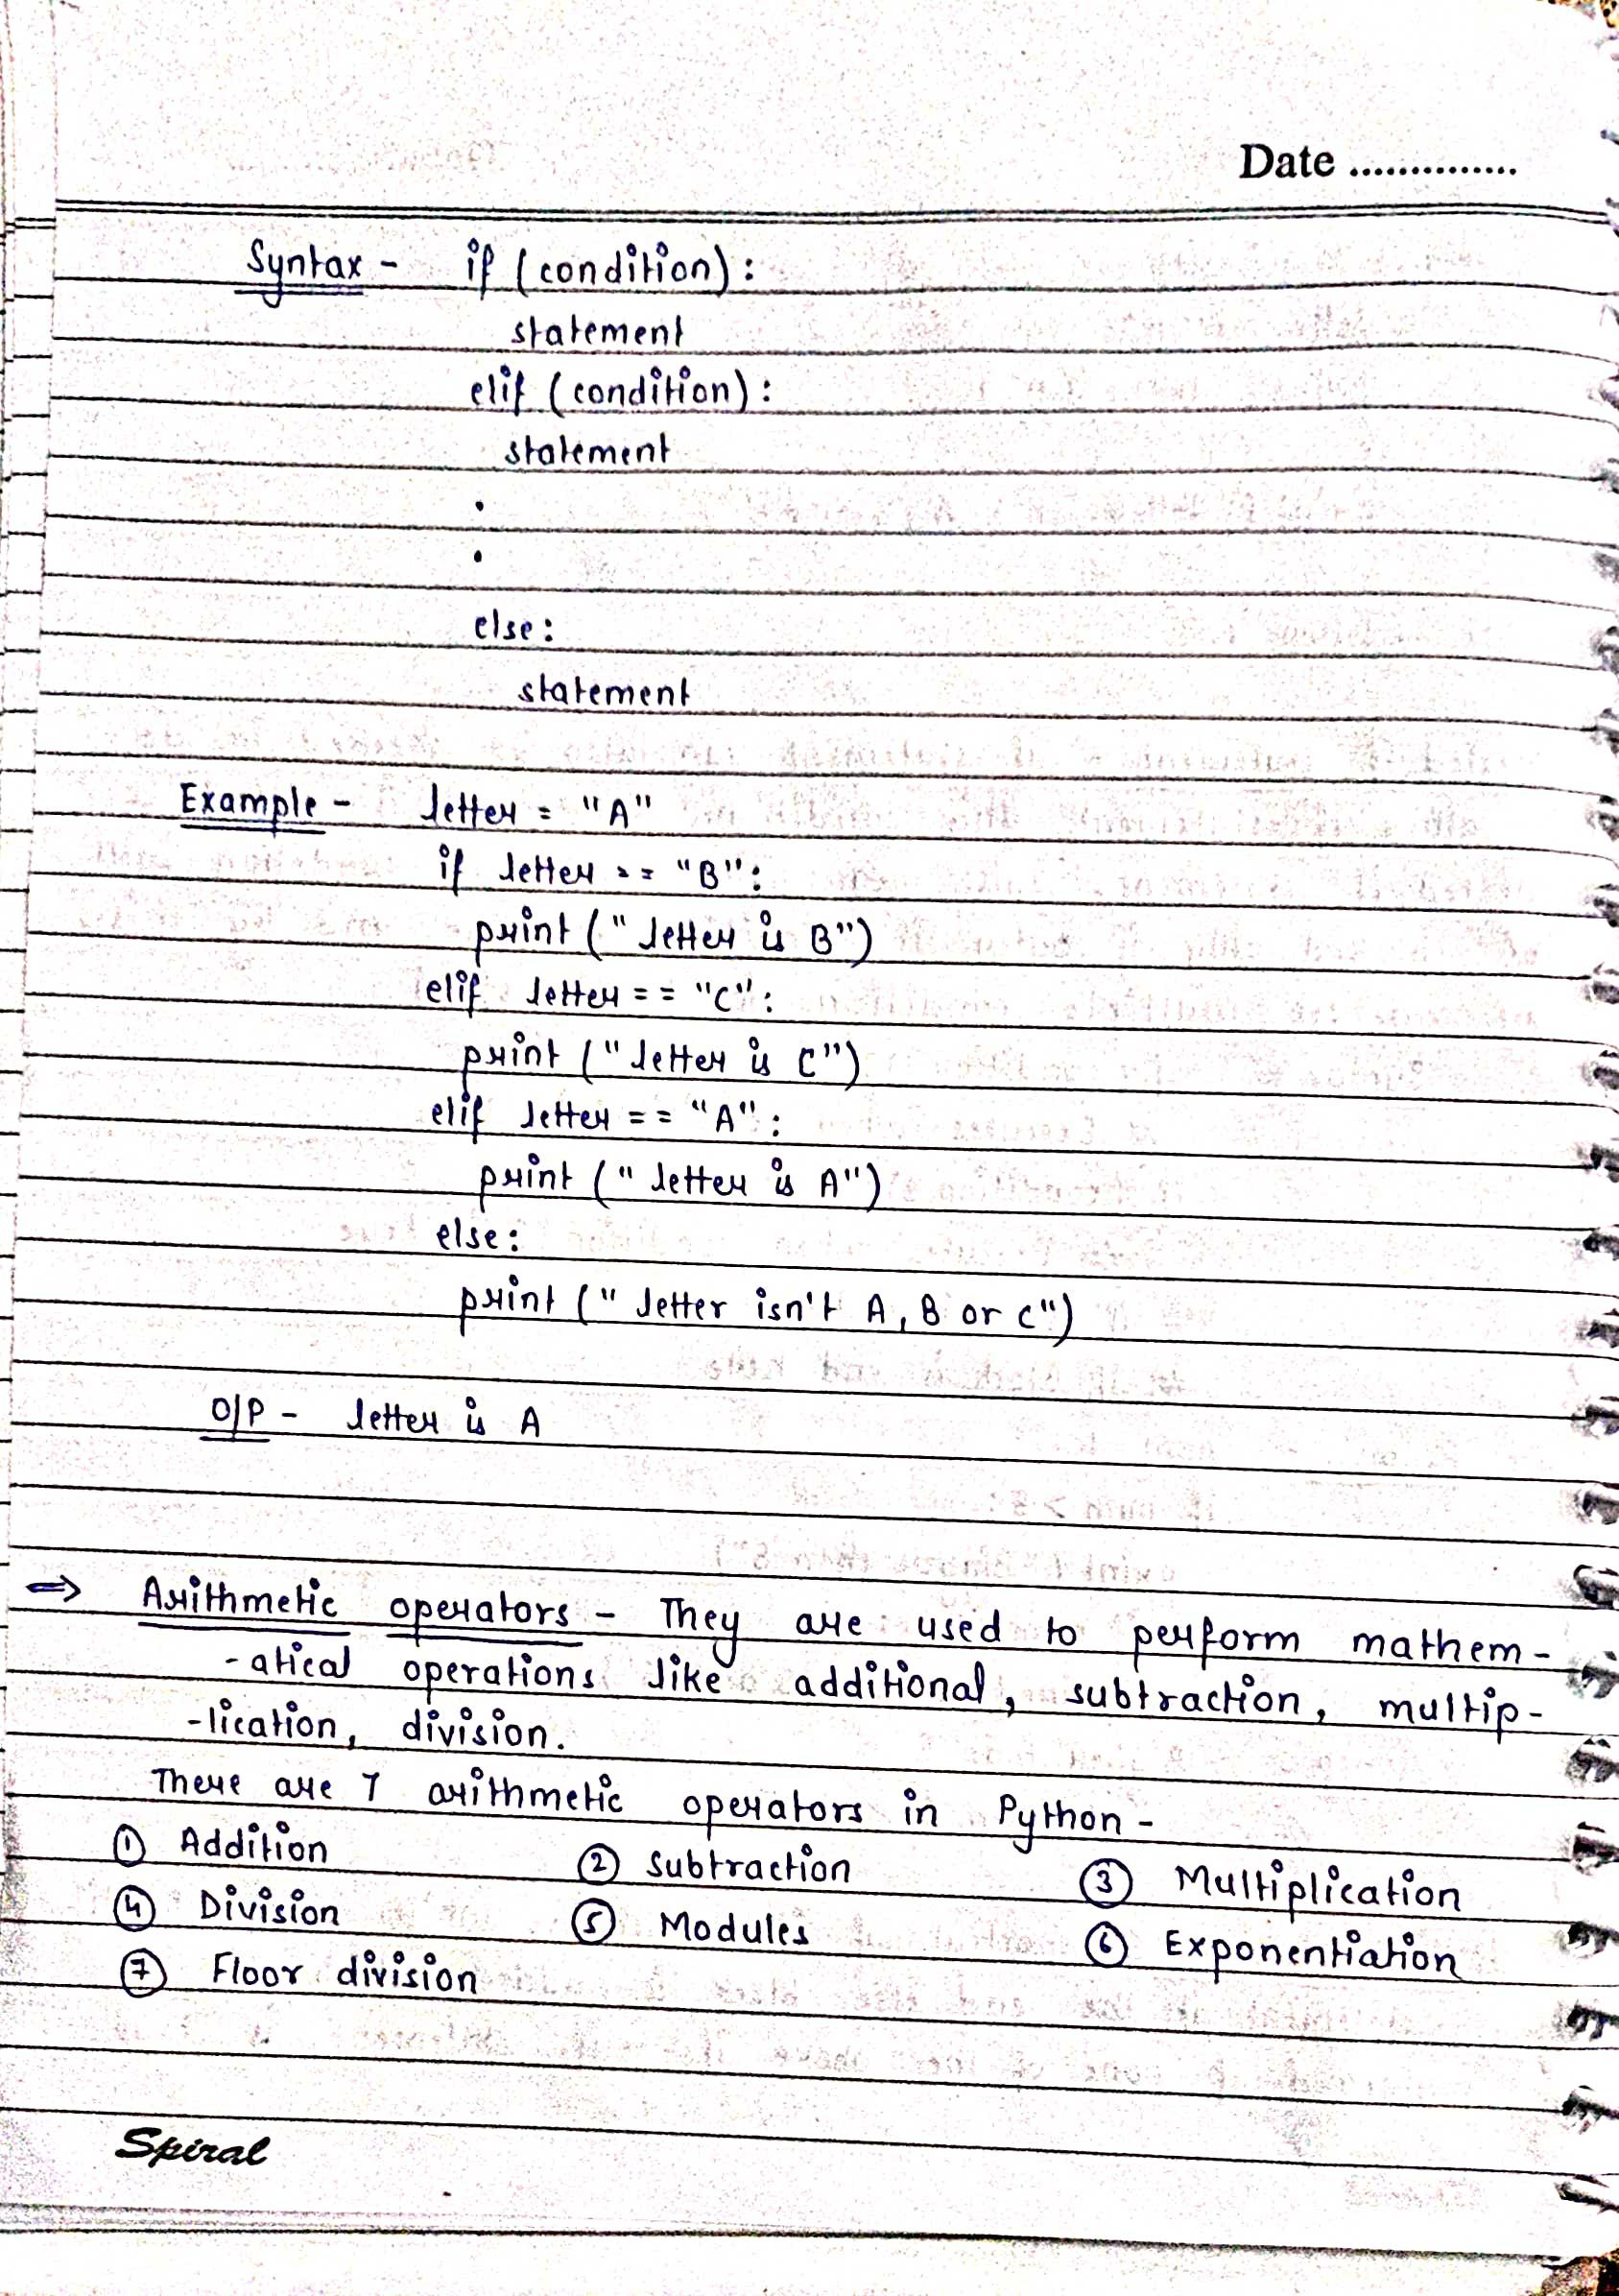 Date ..............
Syntax - if (condition):
statement
elif (condition):
statement
.
.
else:
statement
Example - letter = "A"
if letter == "B":
print (" letter is B")
elif letter == "C":
print (" letter is C")
elif letter == "A":
print (" letter is A")
else:
print (" letter isn't A, B or C")
O/P - letter is A
⇒ Arithmetic operators - They are used to perform mathem-
-atical operations like additional, subtraction, multip-
-lication, division.
There are 7 arithmetic operators in Python -
① Addition ② Subtraction ③ Multiplication
④ Division ⑤ Modules ⑥ Exponentiation
⑦ Floor division
Spiral